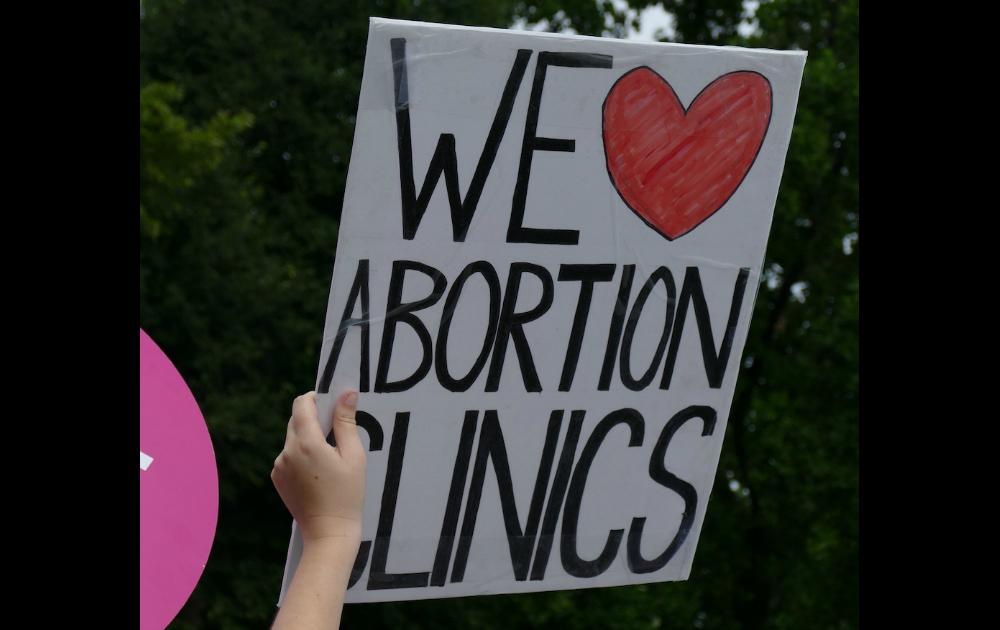 WE
ABORTION
CLINICS